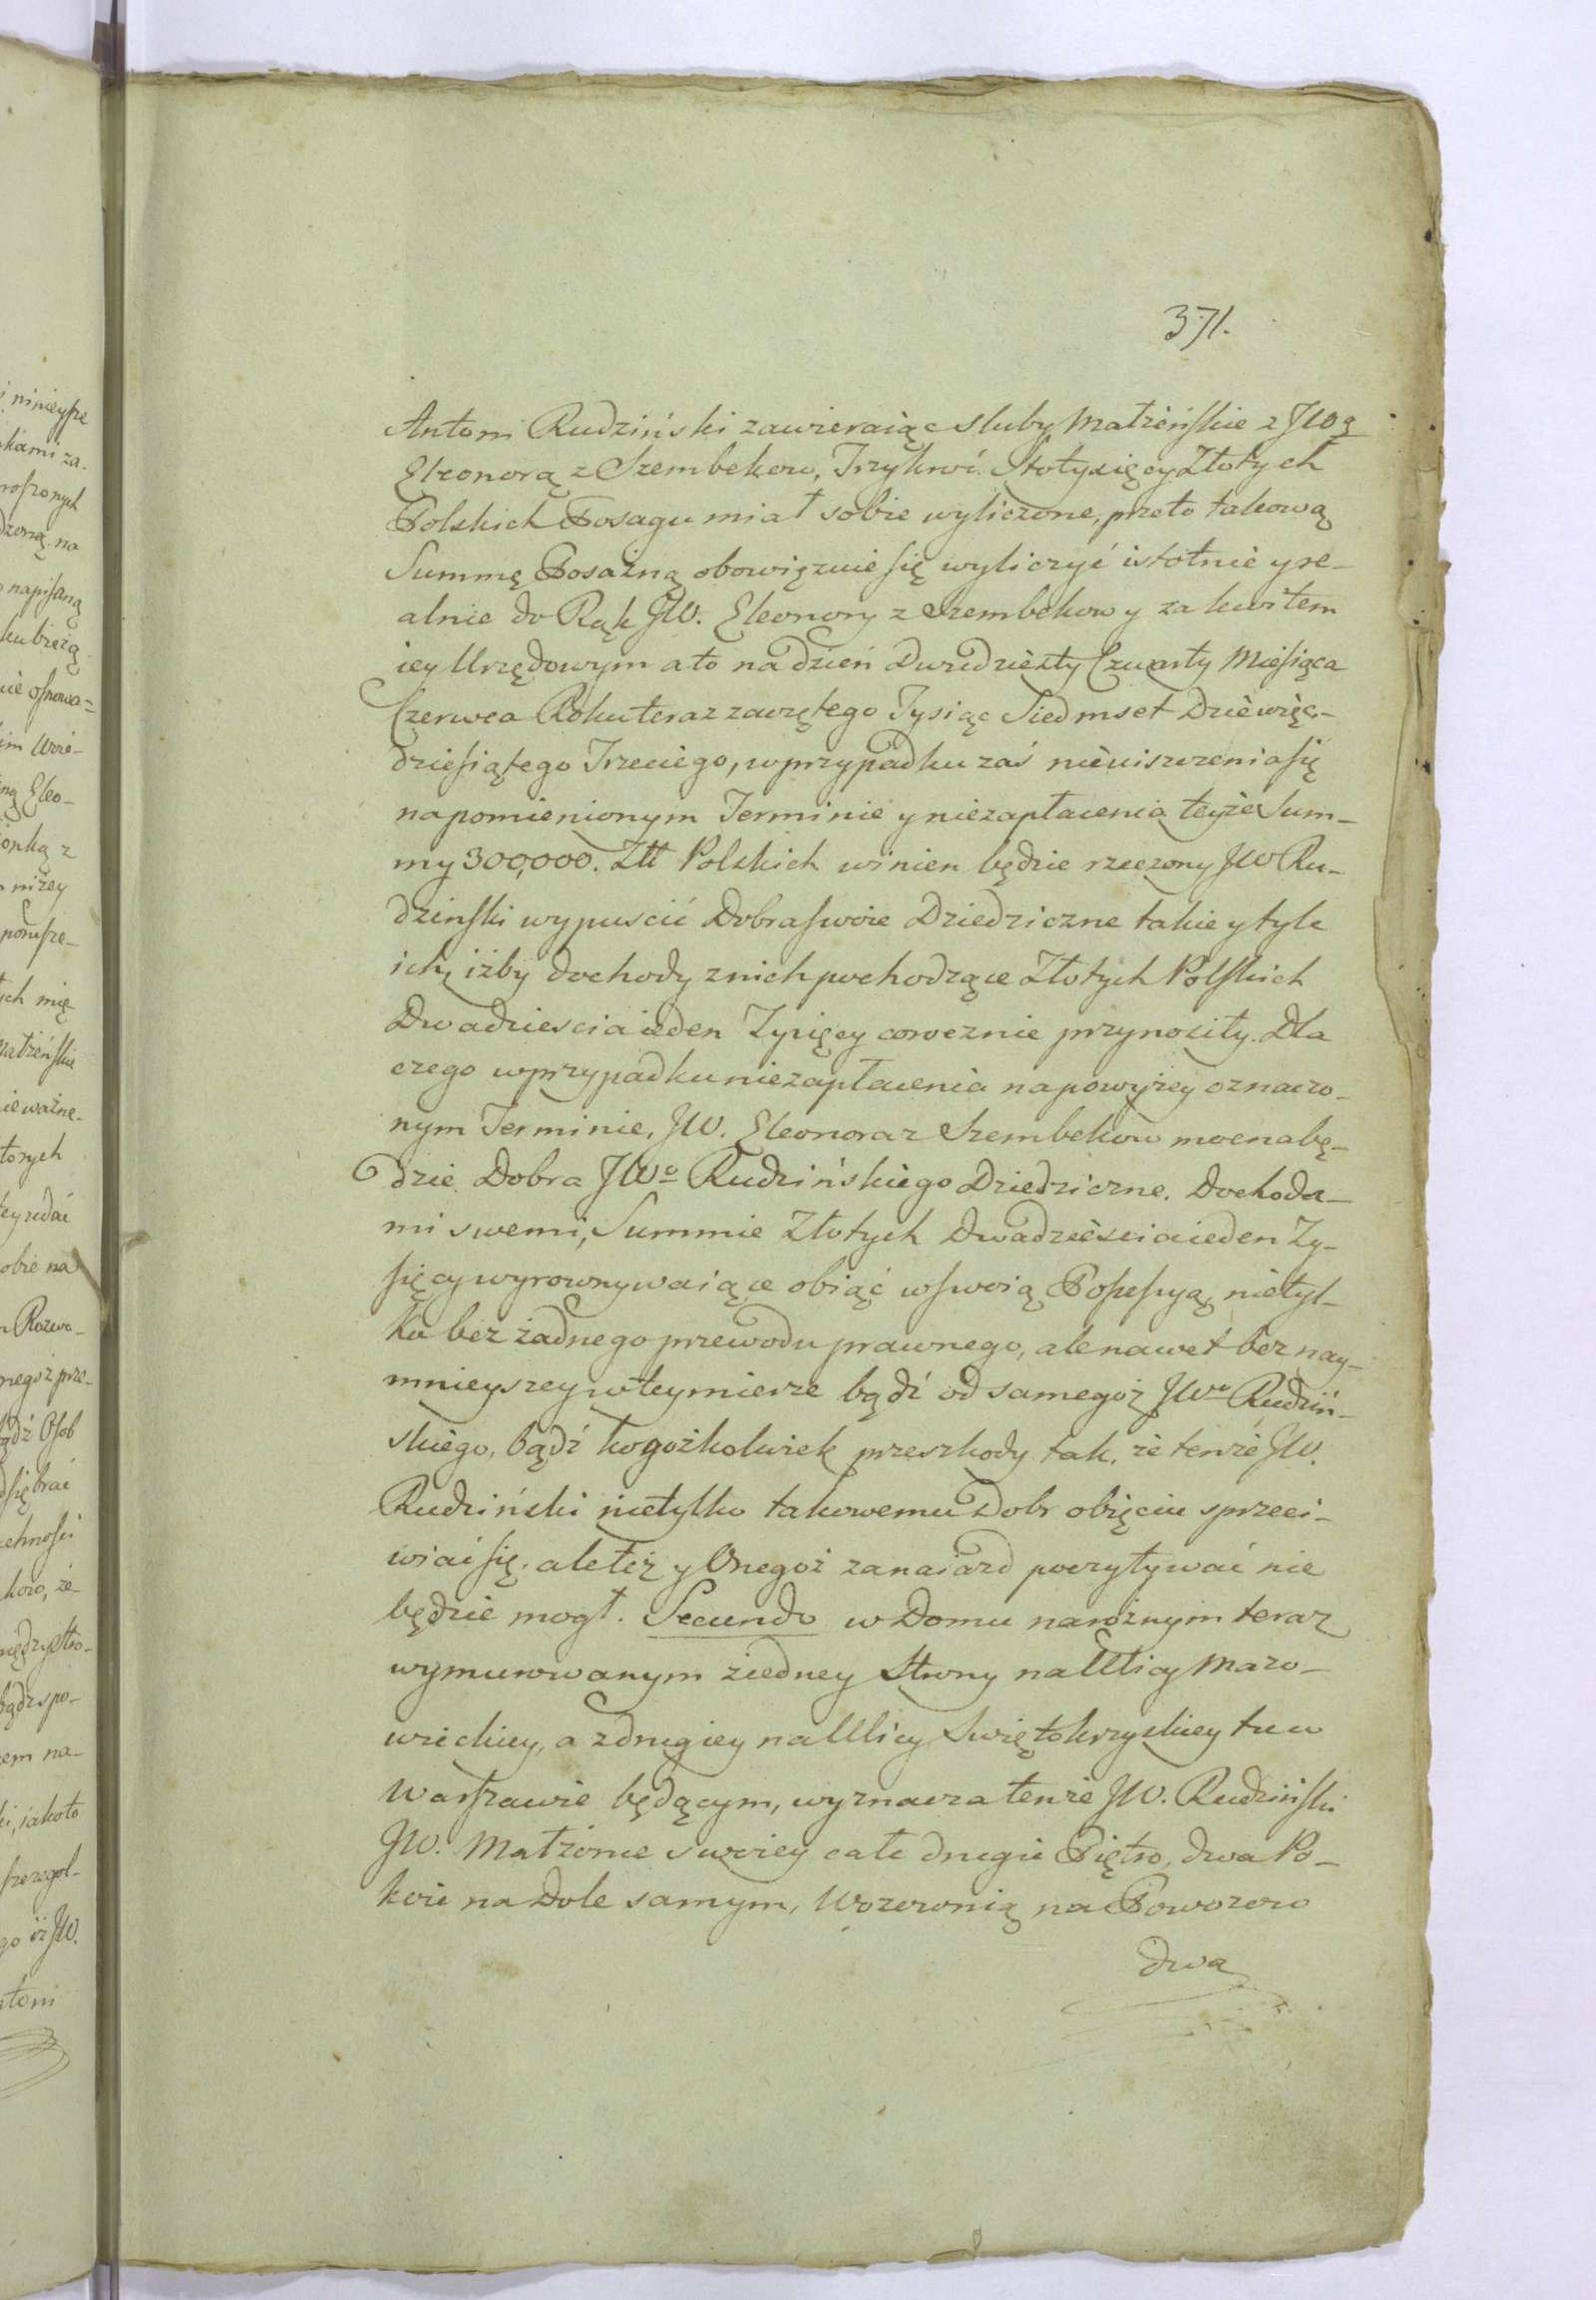 i ninieysze
kami za-
proszonych
dzoną na
napisaną
ku bieżą
nie osnowa=
im Wrie-
ną Eleo-
onką z
niżey
pomsze-
ych mię
Małżeńskie
ieważne-
tonych
obie na
Rozwo-
negoż prze-
ądź Osob
się brać
koro, że-
bądz spo-
em na-
ki, iakoto
szczegol-
go iż JW.
ntoni
371.
Antoni Rudziński zawieraiąc sluby Małżeńskie z JWą
Eleonorą z Szembekow, Trzykroć Stotysięcy Złotych
Polskich Posagu miał sobie wyliczone, przeto takową
Summę Posażną obowięzuie się wyliczyć istotnie y re-
alnie do Rąk JW. Eleonory z Szembekow y za kwitem
iey Urzędowym a to na dzień Dwudziesty Czwarty Miesiąca
Czerwca Roku teraz zawzętego Tysiąc Siedmset Dziewięć-
dziesiątego Trzeciego, w przypadku zaś nieuiszczenia się
na pomienionym Terminie y niezapłacenia teyże Sum-
my 300,000. Złł Polskich winien będzie rzeczony JW Ru-
dzinski wypuscić Dobra swoie Dziedziczne takie y tyle
ich, iżby dochody z nich pochodzące Złotych Polskich
Dwadziescia ieden Tysięcy corocznie przynosiły. Dla
czego w przypadku niezapłacenia na powyżey oznaczo-
nym Terminie, JW. Eleonora z Szembekow mocna bę-
dzie Dobra JWo Rudzińskiego Dziedziczne. Dochoda-
mi swemi, Summie Złotych Dwadziescia ieden Ty-
sięcy wyrownywaiące obiąć w swoią Possessyą, nietyl-
ko bez żadnego przewodu prawnego, ale nawet bez nay-
mnieyszey w tey mierze bądź od samegoż JWo Rudziń-
skiego, bądź kogożkolwiek przeszkody tak, że tenże JW.
Rudziński nietylko takowemu Dobr obięciu sprzeci-
wiać się, ale też y Onegoż za naiazd poczytywać nie
będzie mogł. Secundo w Domu narożnym teraz
wymurowanym z iedney Strony na Ulicy Mazo-
wieckiey, a z drugiey na Ulicy Swiętokrzyskiey tu w
Warszawie będącym, wyznacza tenże JW. Rudziński
JW. Małżonce swoiey całe drugie Piętro, dwa Po-
koie na Dole samym, Wozownią na Powozow
dwa